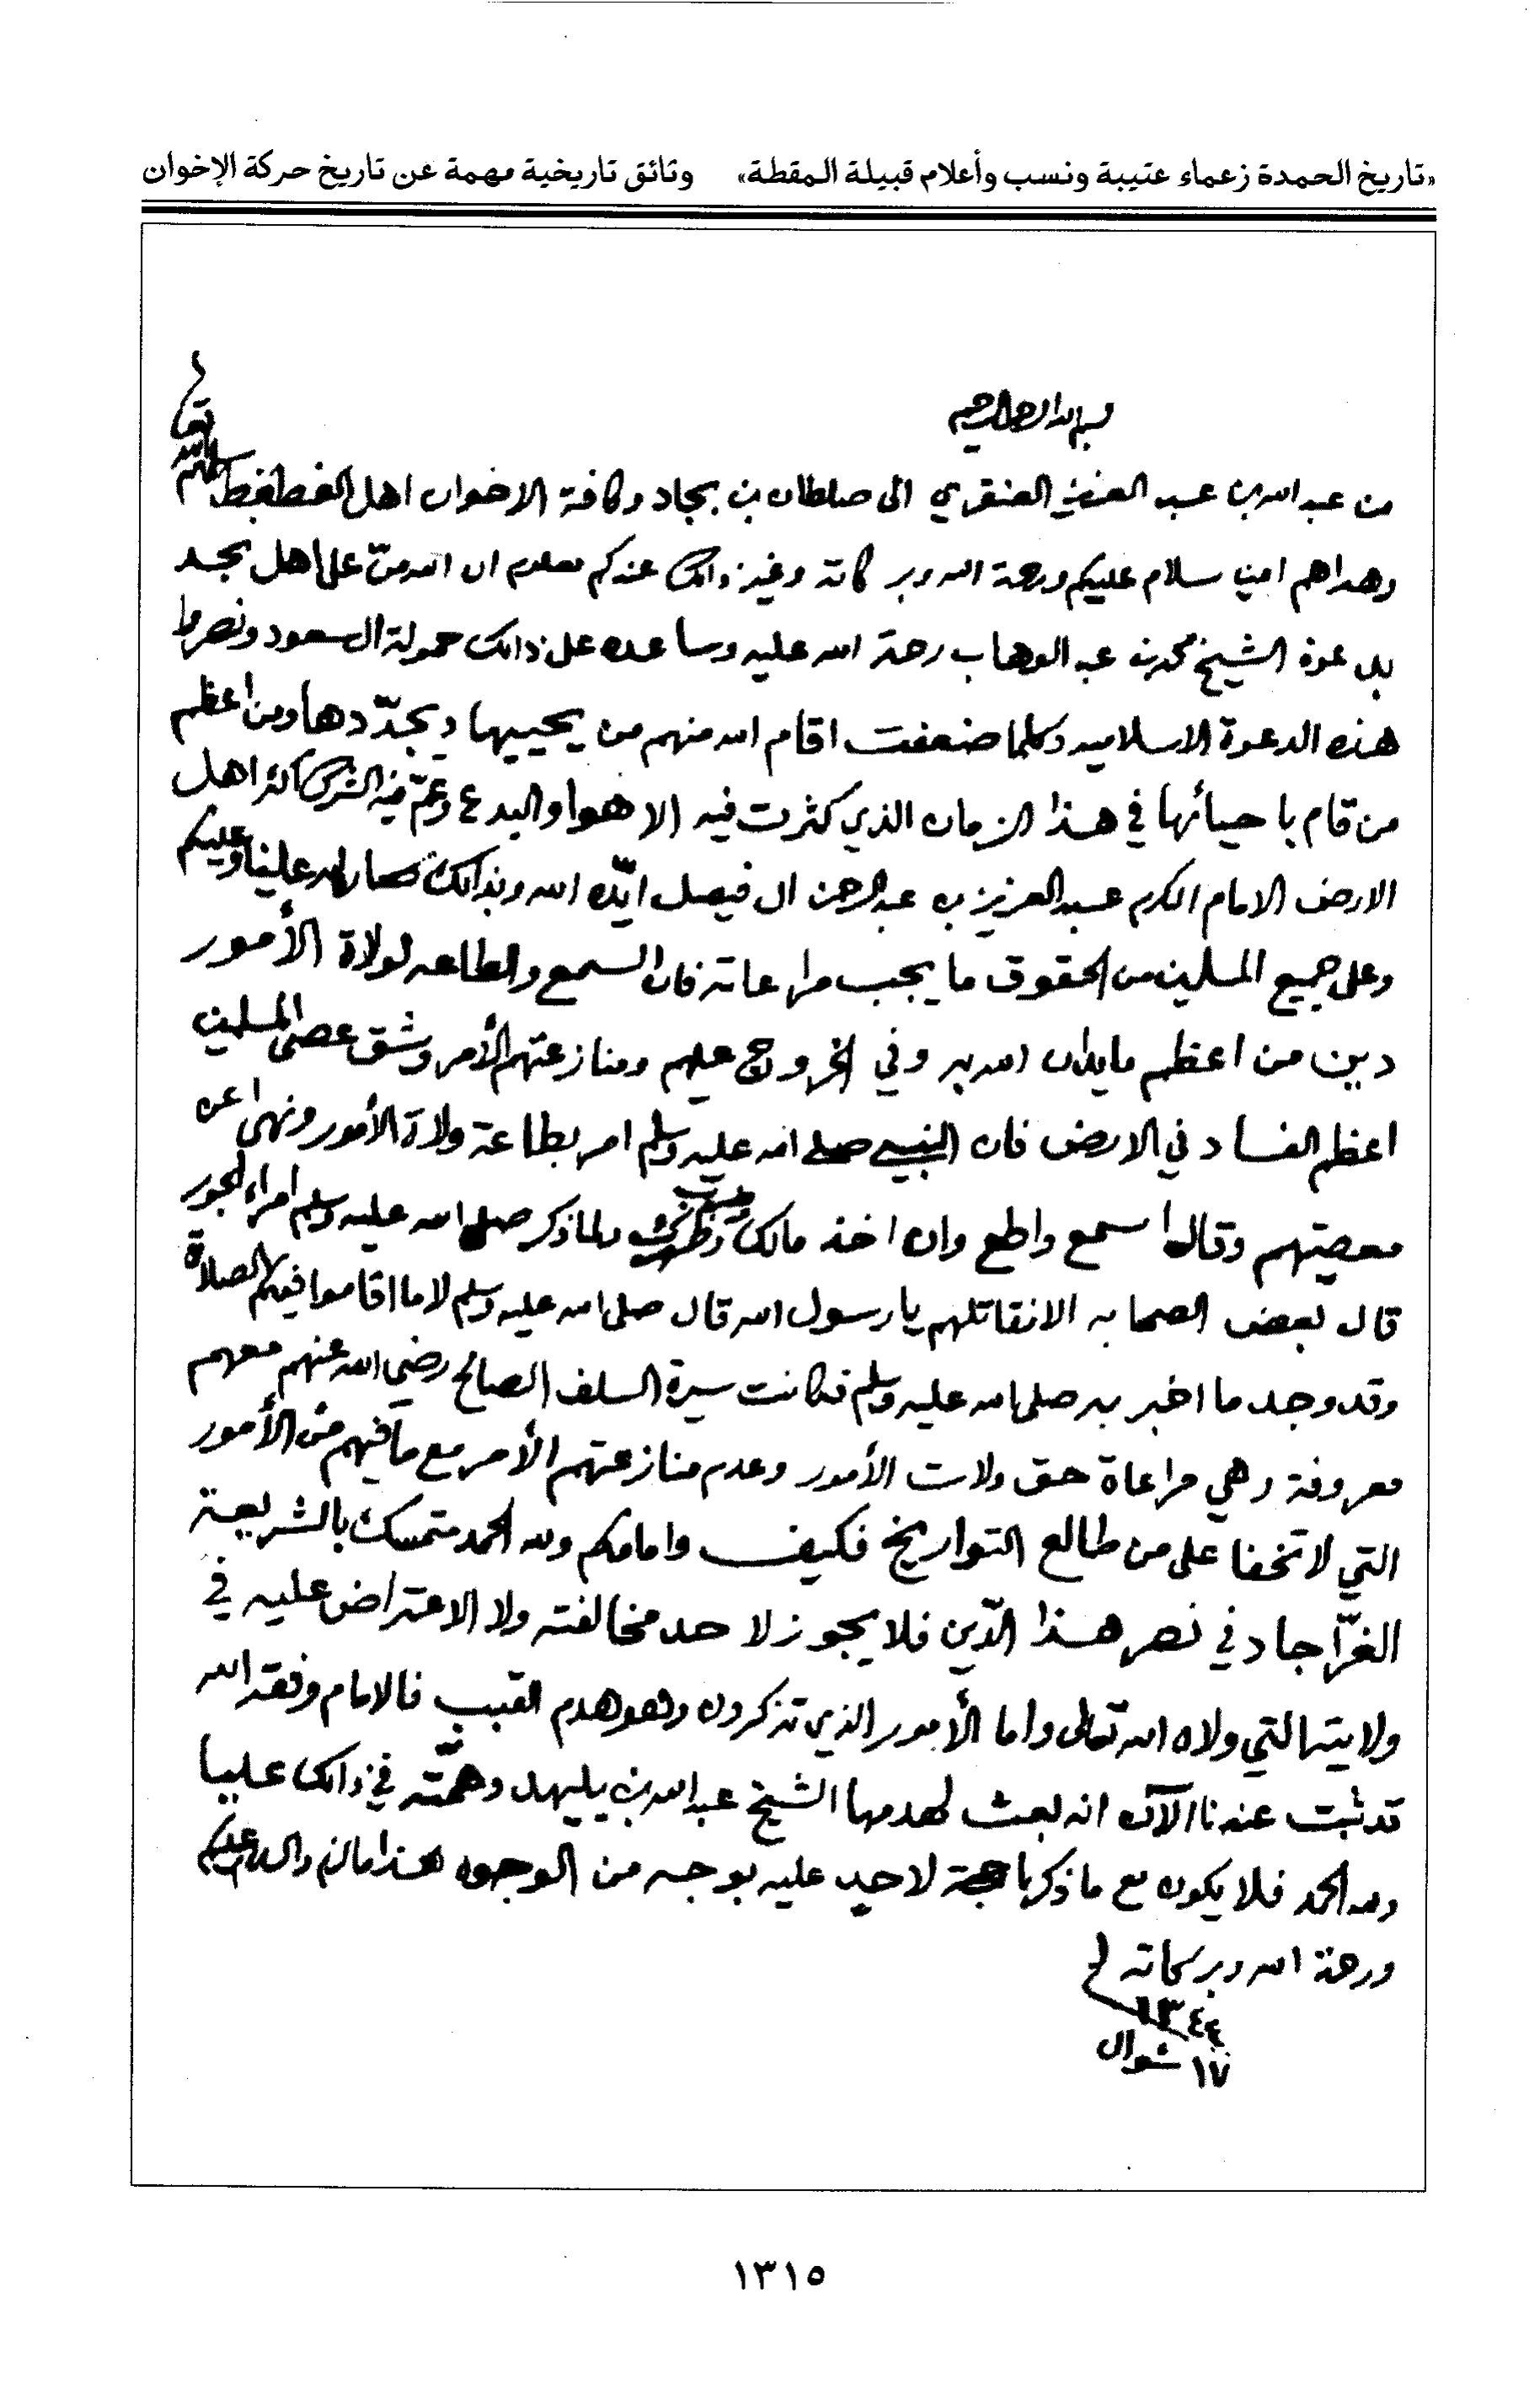 «تاريخ الحمدة زعماء عتيبة ونسب وأعلام قبيلة المقطة» وثائق تاريخية مهمة عن تاريخ حركة الإخوان
بسم الله الرحمن الرحيم
من عبد الله بن عبد العزيز العنقري الى صلطان بن بجاد وكافة الاخوان اهل الغطغط سلمهم الله تعا
وهداهم امين سلام عليكم ورحمة الله وبركاته وغير ذالك عندكم معلوم ان الله منّ على اهل نجد
بدعوة الشيخ محمد بن عبد الوهاب رحمة الله عليه وساعده على ذالك حمولة ال سعود ونصروا
هذه الدعوة الاسلاميه وكلما ضعفت اقام الله منهم من يحييها ويجدّدها ومن اعظم
من قام باحيائها في هذا الزمان الذي كثرت فيه الاهوا والبدع وعمّ فيه الشرك اكثر اهل
الارض الامام المكرم عبد العزيز بن عبد الرحمن ال فيصل ايّده الله وبذالك صار له علينا وعليكم
وعلى جميع المسلمين من الحقوق ما يجب مراعاته فان السمع والطاعه لولاة الأمور
دين من اعظم ما يدان الله به وفي الخروج عليهم ومنازعتهم الأمر وشق عصى المسلمين
اعظم الفساد في الارض فان النبي صلى الله عليه وسلم امر بطاعة ولاة الأمور ونهى عن
معصيتهم وقال اسمع واطع وان اخذ مالك وضرب ظهرك ولما ذكر صلى الله عليه وسلم امراء الجور
قال بعض الصحابه الا نقاتلهم يا رسول الله قال صلى الله عليه وسلم لا ما اقاموا فيكم الصلاة
وقد وجد ما اخبر به صلى الله عليه وسلم فكانت سيرة السلف الصالح رضي الله عنهم معهم
معروفة وهي مراعاة حق ولات الأمور وعدم منازعتهم الأمر مع ما فيهم من الأمور
التي لا تخفا على من طالع التواريخ فكيف وامامكم ولله الحمد متمسك بالشريعة
الغرّا جاد في نصر هذا الدّين فلا يجوز لاحد مخالفته ولا الاعتراض عليه في
ولايته التي ولاه الله تعالى واما الأمور الذي تذكرون وهو هدم القبب فالامام وفقه الله
قد ثبت عندنا الآن انه بعث لهدمها الشيخ عبد الله بن بليهد وهمّته في ذالك عليا
ولله الحمد فلا يكون مع ما ذكرنا حجة لاحد عليه بوجه من الوجوه هذا مالزم والسلام عليكم
ورحمة الله وبركاته
١٣٤٢
١٧ شوال
١٣١٥